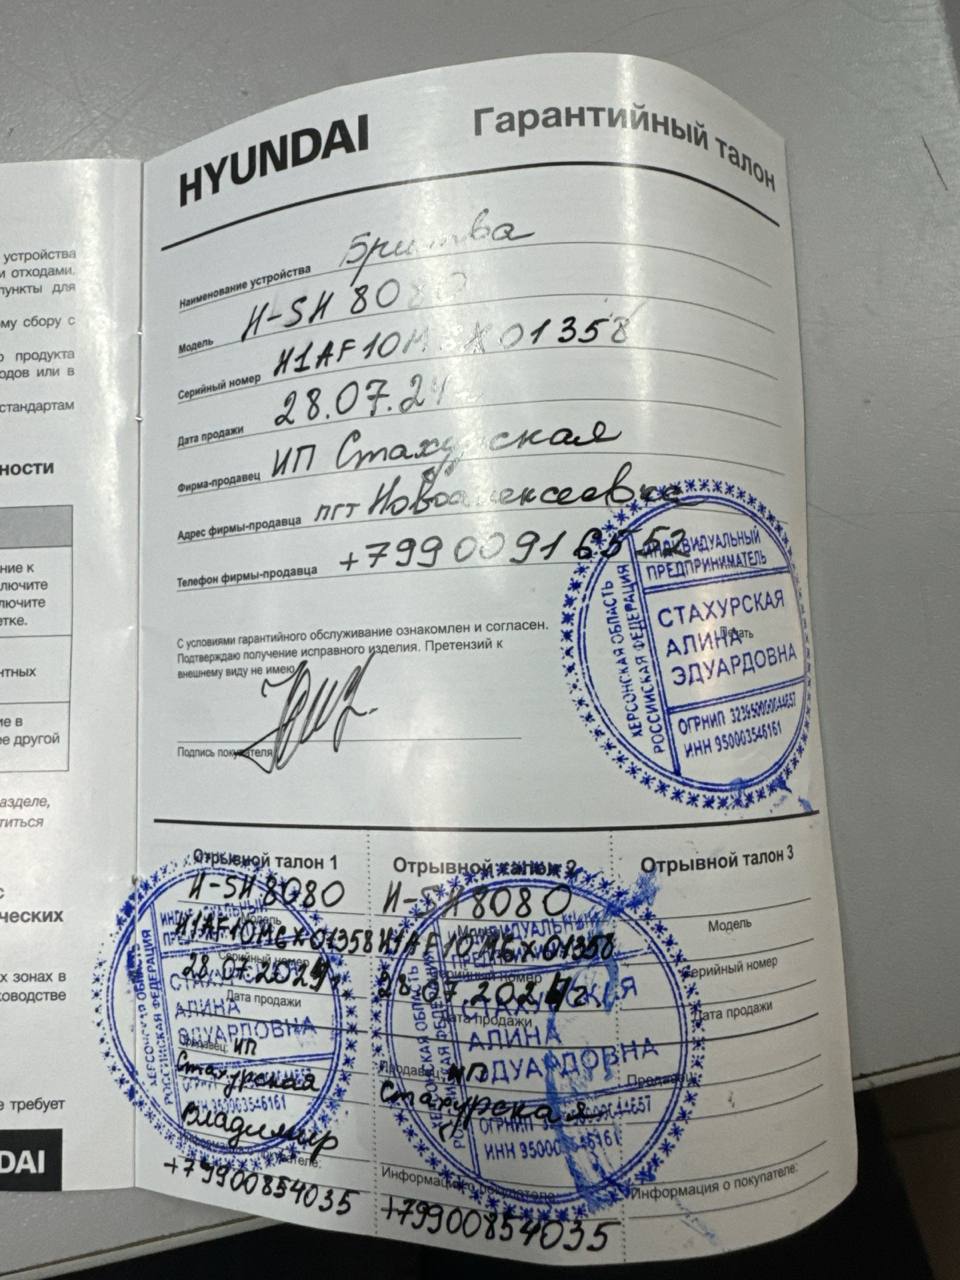 HYUNDAI
Гарантийный талон
Наименование устройства Бритва
Модель H-SH 8080
Серийный номер H1AF10M6X01358
Дата продажи 28.07.24
Фирма-продавец ИП Стахурская
Адрес фирмы-продавца пгт Новоалексеевка
Телефон фирмы-продавца +79900916552
С условиями гарантийного обслуживание ознакомлен и согласен.
Подтверждаю получение исправного изделия. Претензий к
внешнему виду не имею.
Подпись покупателя
Печать
ХЕРСОНСКАЯ ОБЛАСТЬ
РОССИЙСКАЯ ФЕДЕРАЦИЯ
ИНДИВИДУАЛЬНЫЙ
ПРЕДПРИНИМАТЕЛЬ
СТАХУРСКАЯ
АЛИНА
ЭДУАРДОВНА
ОГРНИП
ИНН 950003546161
Отрывной талон 1
H-SH 8080
Модель
H1AF10M6X01358
Серийный номер
28.07.2024г
Дата продажи
Продавец: ИП
Стахурская
Владимир
Информация о покупателе:
+79900854035
СТАХУРСКАЯ
АЛИНА
ЭДУАРДОВНА
Отрывной талон 2
H-SH 8080
Модель
H1AF10M6X01358
Серийный номер
28.07.2024г
Дата продажи
Продавец: ИП
Стахурская
Информация о покупателе:
+79900854035
СТАХУРСКАЯ
АЛИНА
ЭДУАРДОВНА
ОГРНИП
ИНН 950003546161
Отрывной талон 3
Модель
Серийный номер
Дата продажи
Продавец:
Информация о покупателе:
устройства
и отходами.
пункты для
ому сбору с
о продукта
одов или в
стандартам
ности
ние к
лючите
лючите
етке.
нтных
ие в
ее другой
азделе,
титься
с
ческих
х зонах в
ководстве
е требует
DAI